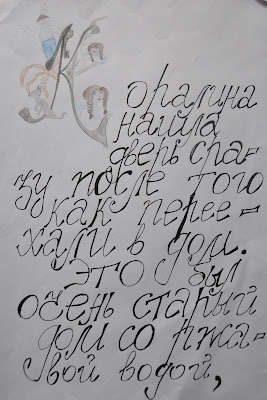 Коралина
нашла
дверь сра-
зу после того
как перее-
хали в дом.
это был
очень старый
дом со ржа-
вой водой,